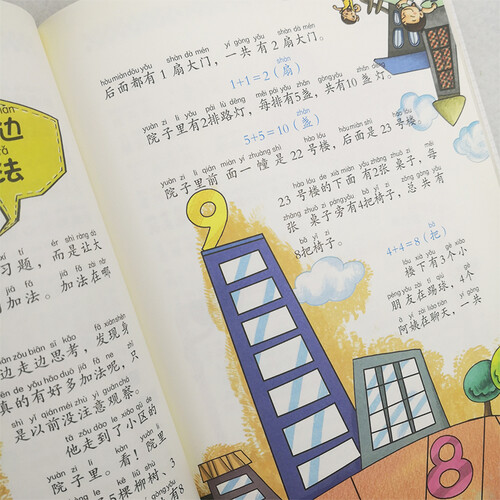 边
法
习题，而是让大
加法。加法在哪
边走边思考，发现身
真的有好多加法呢，只
是以前没注意观察。
他走到了小区的
院子里。看！院里
5棵柳树，3
有8
hòu miàn dōu yǒu shàn dà mén yí gòng yǒu shàn dà mén
后面都有1扇大门，一共有2扇大门。
shàn
1+1=2（扇）
yuàn zi lǐ yǒu pái lù dēng měi pái yǒu zhǎn gòng yǒu zhǎn dēng
院子里有2排路灯，每排有5盏，共有10盏灯。
zhǎn
5+5=10（盏）
yuàn zi lǐ qián miàn yí zhuàng shì hào lóu hòu miàn shì hào lóu
院子里前面一幢是22号楼，后面是23号楼。
hào lóu de xià miàn yǒu zhāng zhuō zi měi
23号楼的下面有2张桌子，每
zhāng zhuō zi páng yǒu bǎ yǐ zi zǒng gòng yǒu
张桌子旁有4把椅子，总共有
bǎ yǐ zi
8把椅子。
bǎ
4+4=8（把）
lóu xià yǒu gè xiǎo
楼下有3个小
péng yǒu zài tī qiú gè
朋友在踢球，4个
ā yí zài liáo tiān yí gòng
阿姨在聊天，一共
9
8